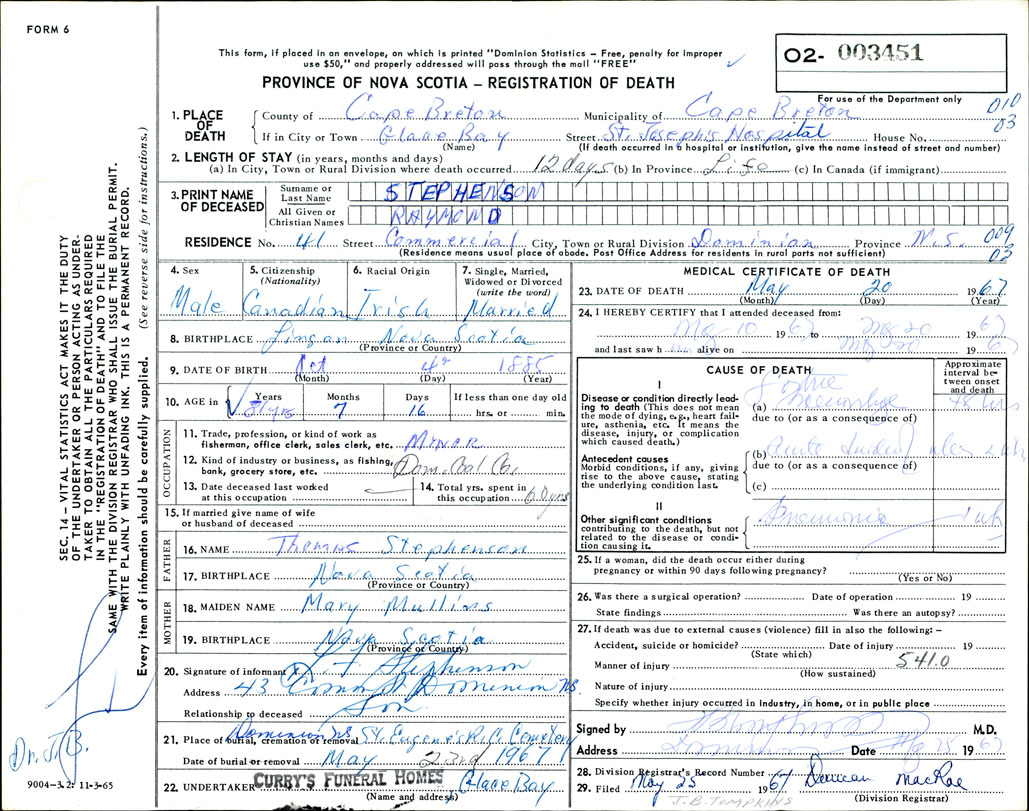 FORM 6
This form, if placed in an envelope, on which is printed "Dominion Statistics – Free, penalty for improper
use $50," and properly addressed will pass through the mail "FREE"
O2- 003451
For use of the Department only
PROVINCE OF NOVA SCOTIA – REGISTRATION OF DEATH
010
03
1. PLACE OF DEATH
County of Cape Breton Municipality of Cape Breton
If in City or Town Glace Bay Street St. Joseph's Hospital House No.
(Name) (If death occurred in a hospital or institution, give the name instead of street and number)
2. LENGTH OF STAY (in years, months and days)
(a) In City, Town or Rural Division where death occurred 12 days (b) In Province Life (c) In Canada (if immigrant)
3. PRINT NAME OF DECEASED
Surname or Last Name STEPHENSON
All Given or Christian Names RAYMOND
RESIDENCE No. 41 Street Commercial City, Town or Rural Division Dominian Province N.S. 009
03
(Residence means usual place of abode. Post Office Address for residents in rural parts not sufficient)
4. Sex Male
5. Citizenship (Nationality) Canadian
6. Racial Origin Irish
7. Single, Married, Widowed or Divorced (write the word) Married
8. BIRTHPLACE Lingan Nova Scotia
(Province or Country)
9. DATE OF BIRTH Oct 4 1885
(Month) (Day) (Year)
10. AGE in Years Months Days If less than one day old
81 yrs 7 16 hrs. or min.
OCCUPATION
11. Trade, profession, or kind of work as
fisherman, office clerk, sales clerk, etc. MINER
12. Kind of industry or business, as fishing,
bank, grocery store, etc. Dom. Coal Co.
13. Date deceased last worked
at this occupation
14. Total yrs. spent in
this occupation 60 yrs
15. If married give name of wife
or husband of deceased
FATHER
16. NAME Thomas Stephenson
17. BIRTHPLACE Nova Scotia
(Province or Country)
MOTHER
18. MAIDEN NAME Mary Mullins
19. BIRTHPLACE Nova Scotia
(Province or Country)
20. Signature of informant Stephenson
Address 43 Comm St Dominion N.S.
Relationship to deceased Son
21. Place of burial, cremation or removal Dominion N.S. St. Eugene's R.C. Cemetery
Date of burial or removal May 23rd 1967
22. UNDERTAKER CURRY'S FUNERAL HOMES Glace Bay
(Name and address)
MEDICAL CERTIFICATE OF DEATH
23. DATE OF DEATH May 20 1967
(Month) (Day) (Year)
24. I HEREBY CERTIFY that I attended deceased from:
May 10 1967 to May 20 1967
and last saw h alive on May 20 1967
CAUSE OF DEATH
Approximate interval between onset and death
I
Disease or condition directly leading to death (This does not mean the mode of dying, e.g., heart failure, asthenia, etc. It means the disease, injury, or complication which caused death.)
(a) 48 hrs
due to (or as a consequence of)
Antecedent causes
Morbid conditions, if any, giving rise to the above cause, stating the underlying condition last.
(b) Acute
due to (or as a consequence of)
(c)
II
Other significant conditions
contributing to the death, but not related to the disease or condition causing it.
Pneumonia
25. If a woman, did the death occur either during
pregnancy or within 90 days following pregnancy?
(Yes or No)
26. Was there a surgical operation? Date of operation 19
State findings Was there an autopsy?
27. If death was due to external causes (violence) fill in also the following: –
Accident, suicide or homicide? Date of injury 19
(State which)
Manner of injury 541.0
(How sustained)
Nature of injury
Specify whether injury occurred in Industry, in home, or in public place
Signed by M.D.
Address Dominion Date May 25 1967
28. Division Registrar's Record Number Duncan MacRae
29. Filed May 25 1967
(Division Registrar)
J.B. TOMPKINS
SEC. 14 – VITAL STATISTICS ACT MAKES IT THE DUTY
OF THE UNDERTAKER OR PERSON ACTING AS UNDERTAKER
TO OBTAIN ALL THE PARTICULARS REQUIRED
IN THE "REGISTRATION OF DEATH" AND TO FILE THE
SAME WITH THE DIVISION REGISTRAR WHO SHALL ISSUE THE BURIAL PERMIT.
WRITE PLAINLY WITH UNFADING INK. THIS IS A PERMANENT RECORD.
Every item of information should be carefully supplied. (See reverse side for instructions.)
Dr. J. B.
9004-3.2: 11-3-65